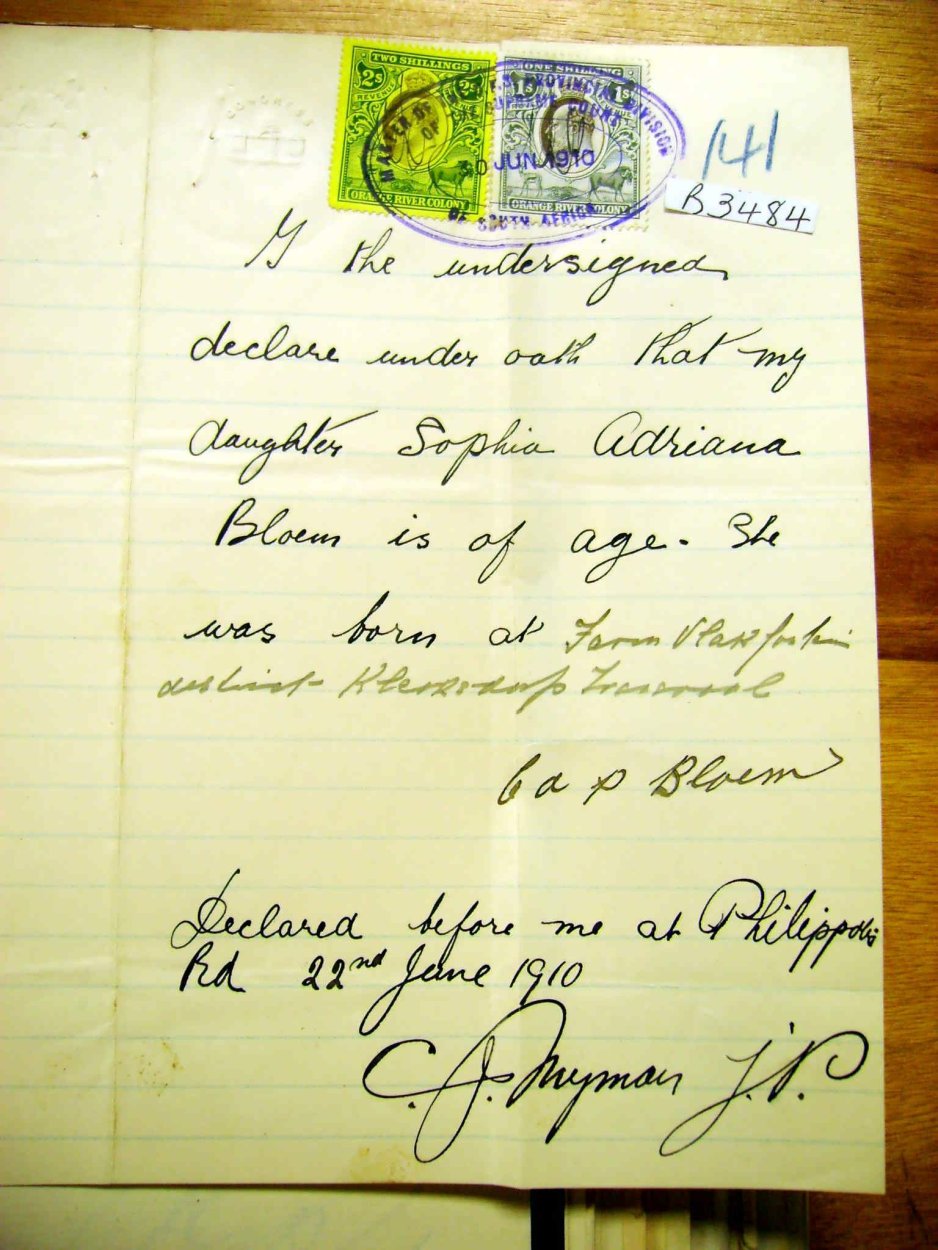 TWO SHILLINGS
2s REVENUE 2s
ORANGE RIVER COLONY
ONE SHILLING
1s 1s
ORANGE RIVER COLONY
MASTER OF THE O.F.S. PROVINCIAL DIVISION
OF THE SUPREME COURT
30 JUN 1910
OF SOUTH AFRICA
141
B3484
I the undersigned
declare under oath that my
daughter Sophia Adriana
Bloem is of age. She
was born at Farm Vlakfontein
district Klerksdorp Transvaal
C d P Bloem
Declared before me at Philippolis
Rd 22nd June 1910
C. J. Myman J.P.